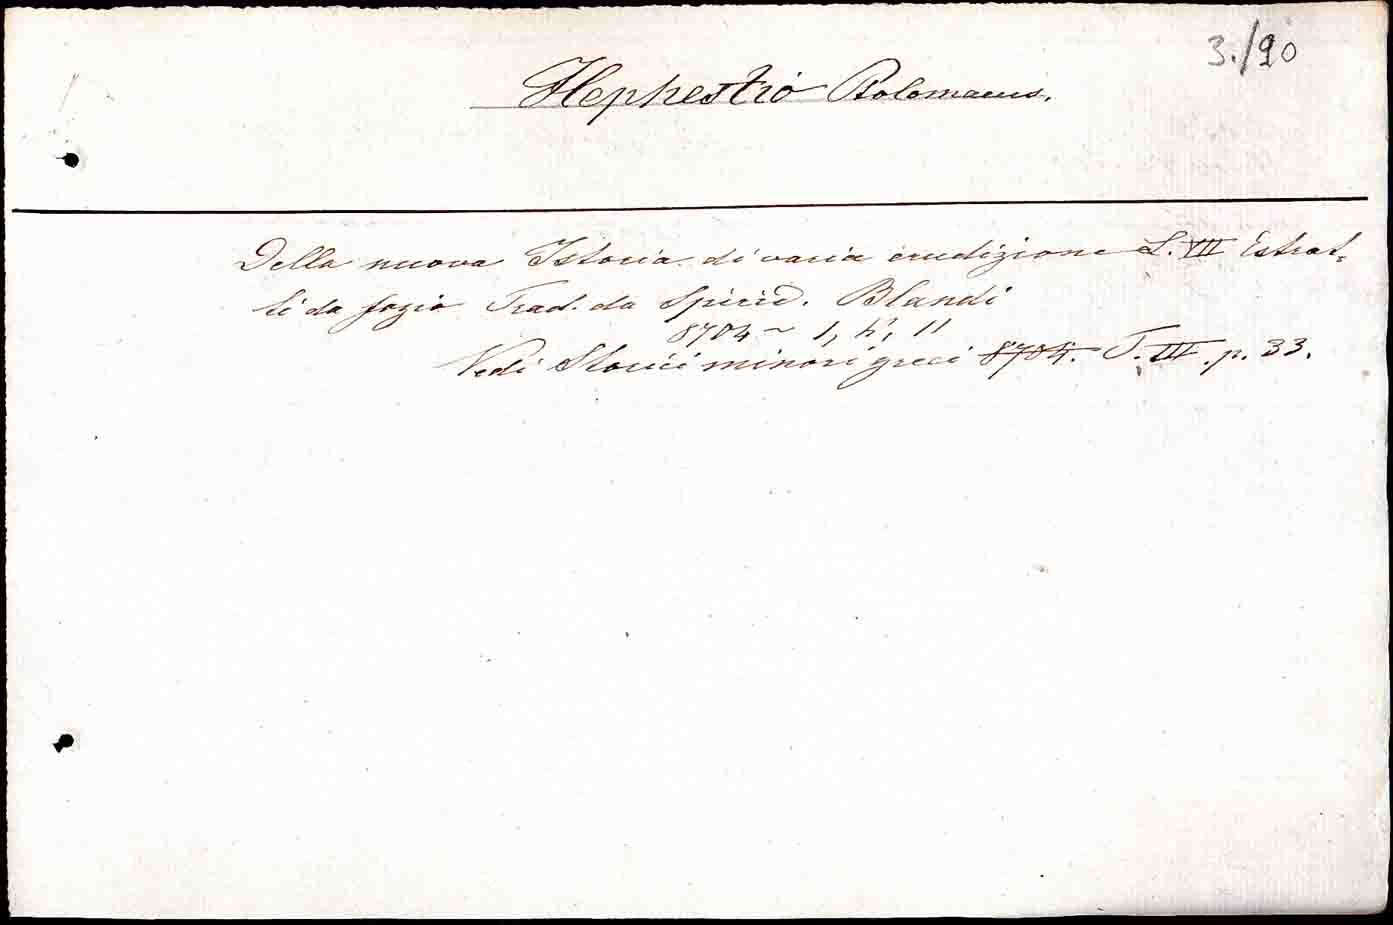 3./90
Hephestio Ptolomaeus.
Della nuova Istoria di varia erudizione L. VII Estrat-
ti da Fozio Trad. da Spirid. Blandi
8704 ~ 1, 4', 11
Vedi Storici minori greci 8704. T. III. p. 33.